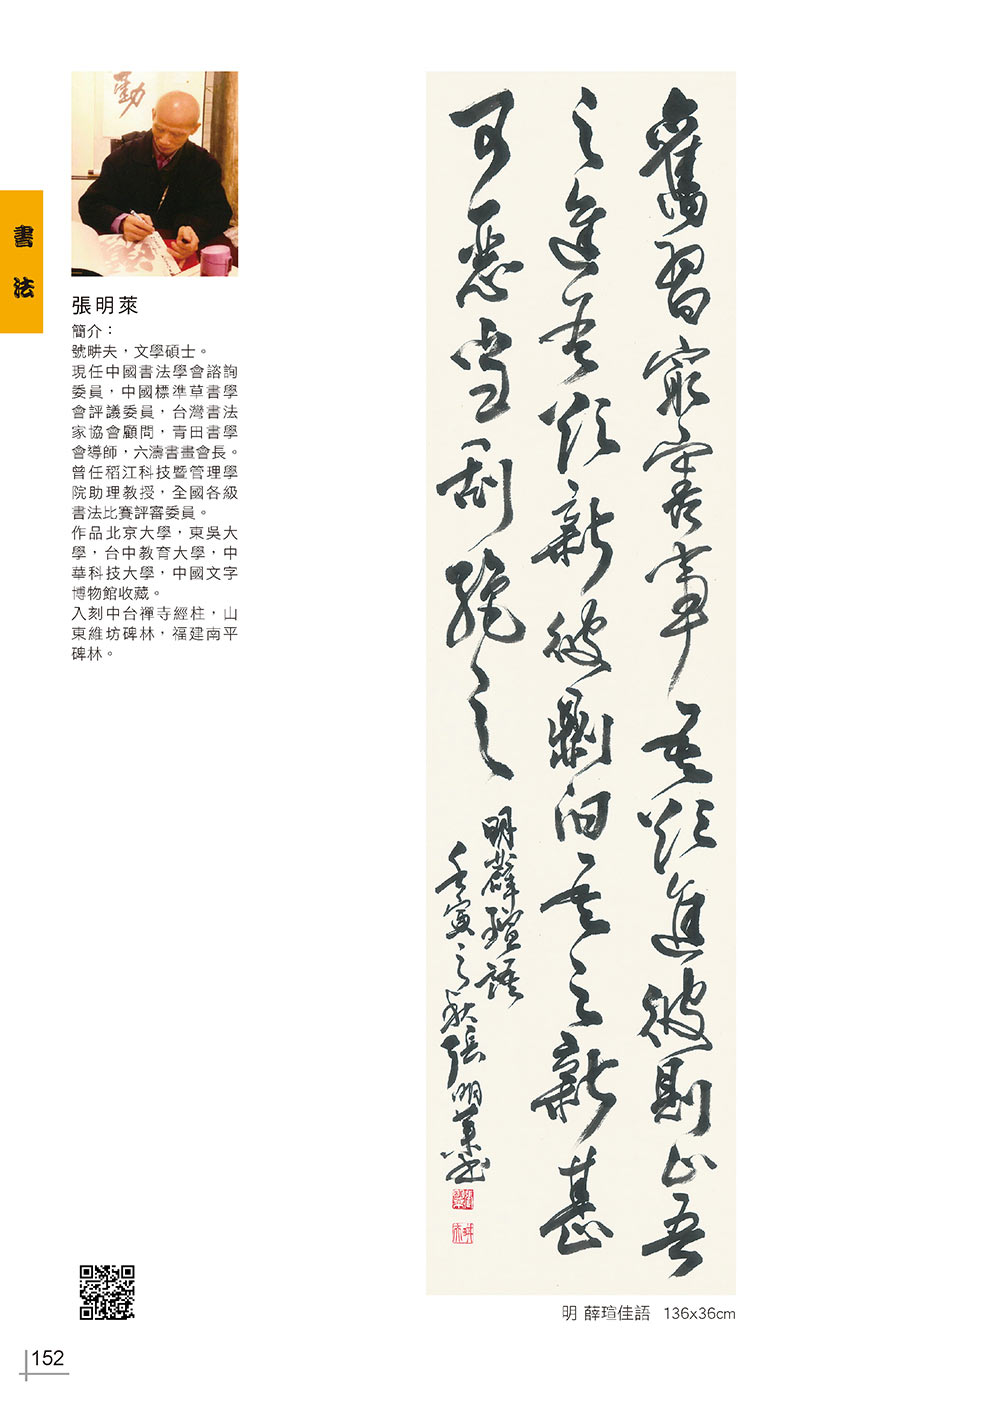 書法
張明萊
簡介：
號畊夫，文學碩士。
現任中國書法學會諮詢
委員，中國標準草書學
會評議委員，台灣書法
家協會顧問，青田書學
會導師，六濤書畫會長。
曾任稻江科技暨管理學
院助理教授，全國各級
書法比賽評審委員。
作品北京大學，東吳大
學，台中教育大學，中
華科技大學，中國文字
博物館收藏。
入刻中台禪寺經柱，山
東維坊碑林，福建南平
碑林。
舊習最害事吾欲進彼則止吾
之進吾欲新彼則汩吾之新甚
可惡当刮絕之
明薛瑄語
壬寅之秋張明萊書
明 薛瑄佳語 136x36cm
152